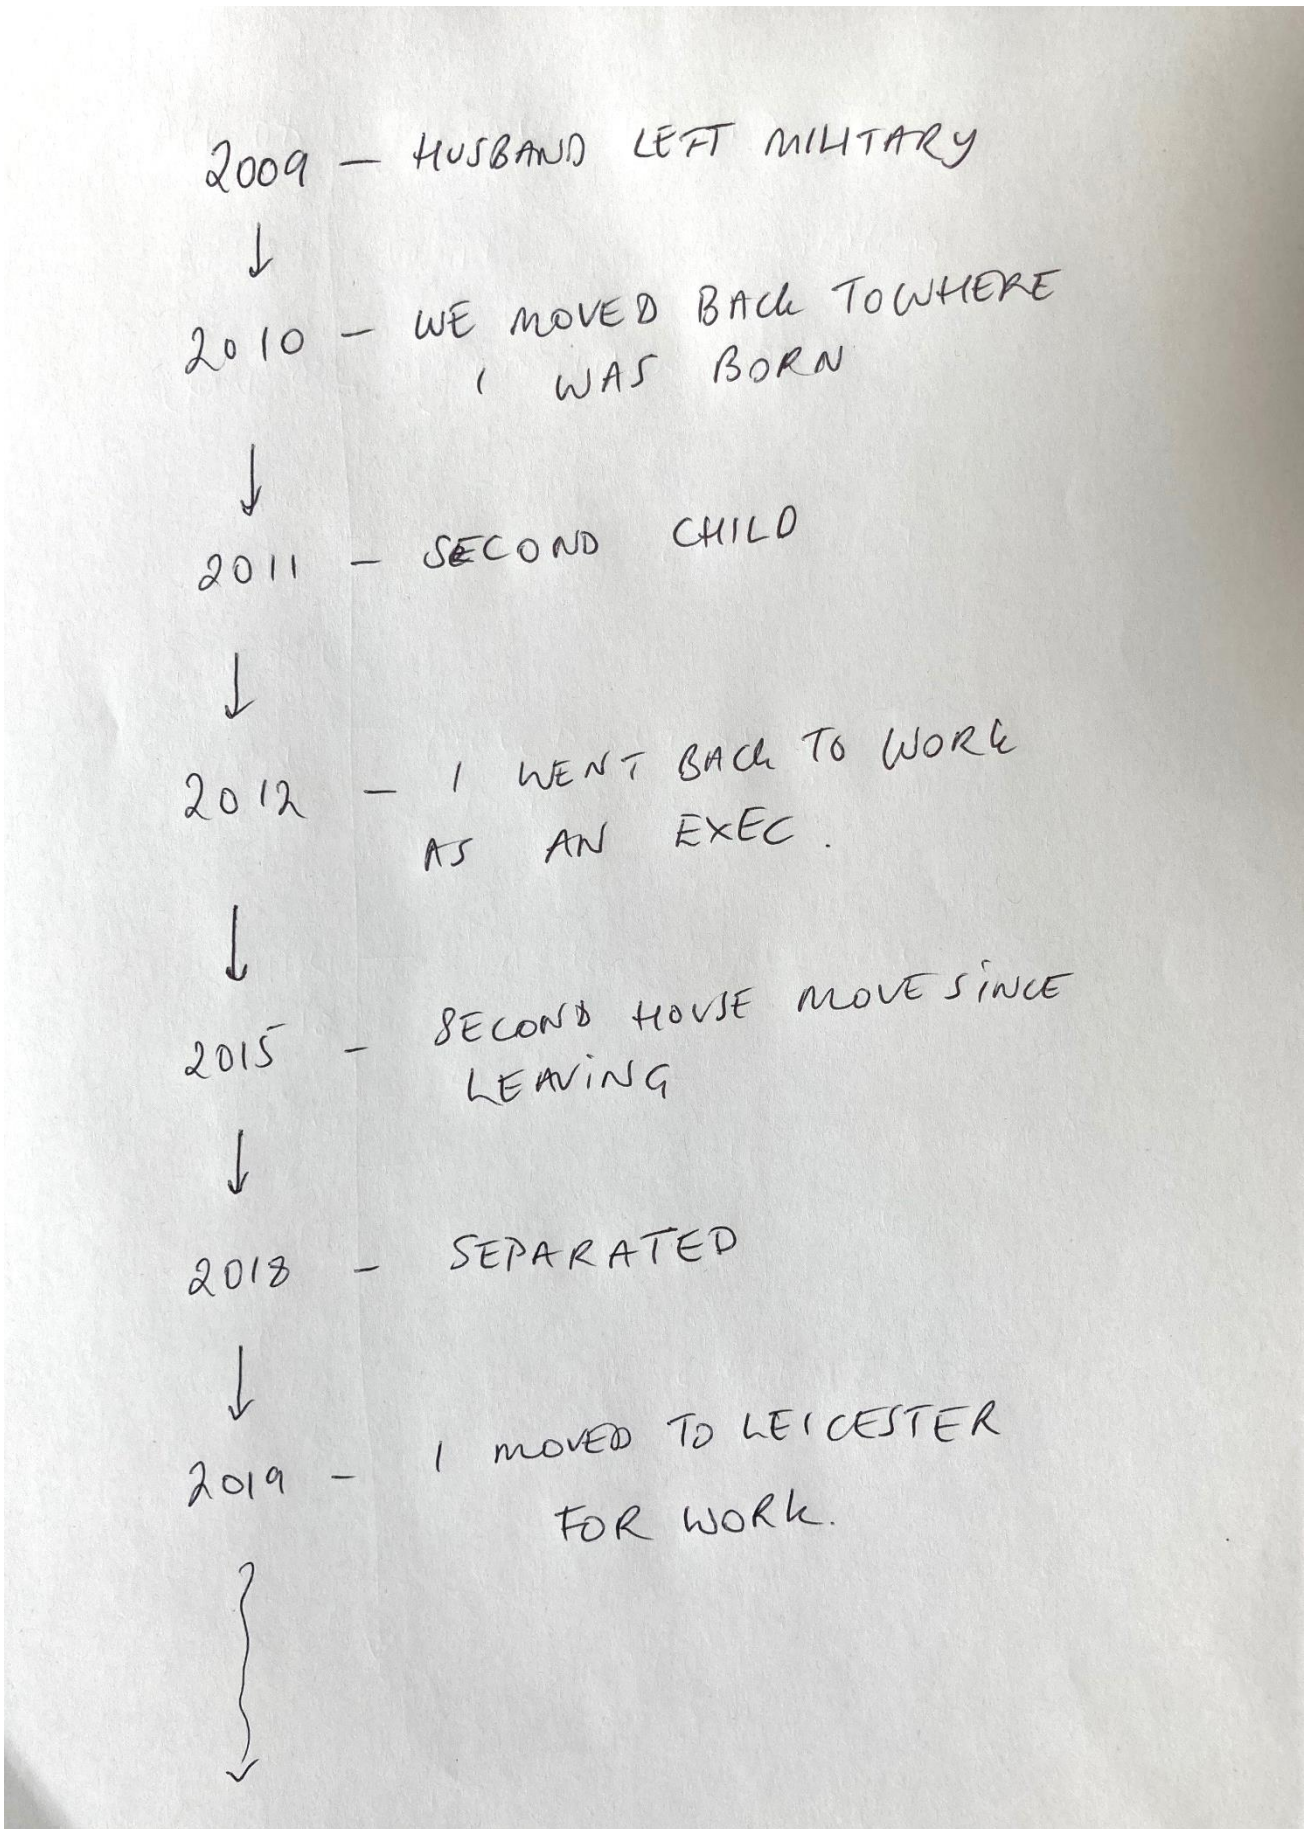 2009 - HUSBAND LEFT MILITARY
↓
2010 - WE MOVED BACK TO WHERE
I WAS BORN
↓
2011 - SECOND CHILD
↓
2012 - I WENT BACK TO WORK
AS AN EXEC.
↓
2015 - SECOND HOUSE MOVE SINCE
LEAVING
↓
2018 - SEPARATED
↓
2019 - I MOVED TO LEICESTER
FOR WORK.
↓